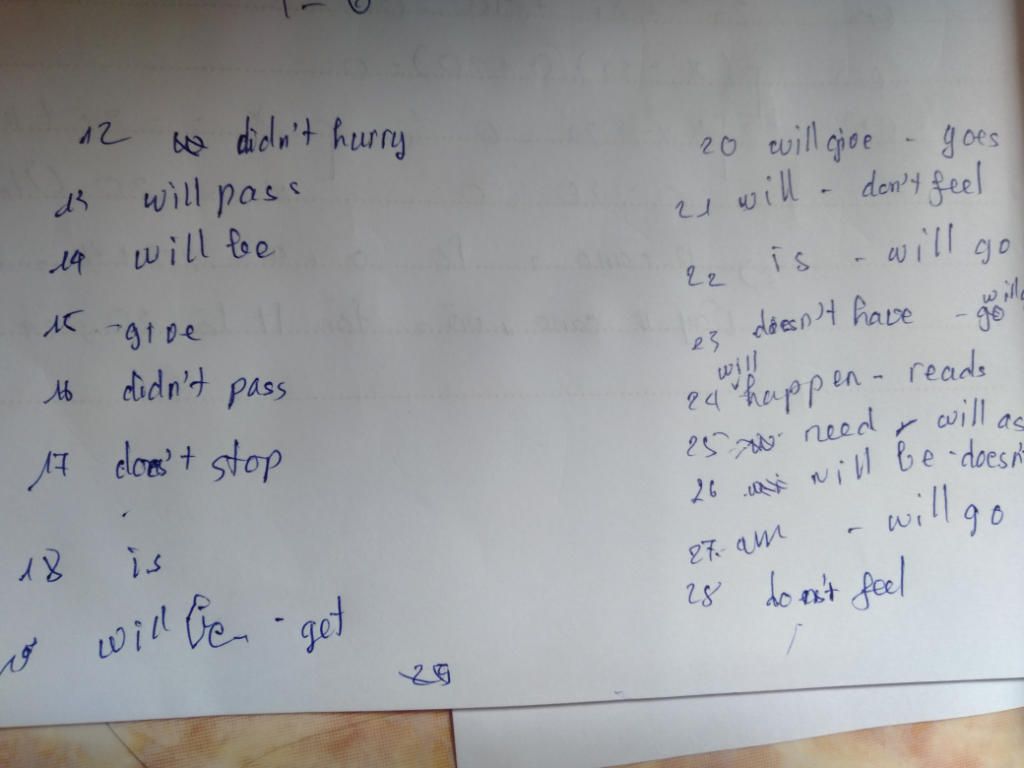 12 didn't hurry
13 will pass
14 will be
15 - give
16 didn't pass
17 doesn't stop
18 is
19 will be - get
29
20 will give - goes
21 will - don't feel
22 is - will go
23 doesn't have - will go
24 will happen - reads
25 need - will as
26 will be - doesn'
27. am - will go
28 don't feel